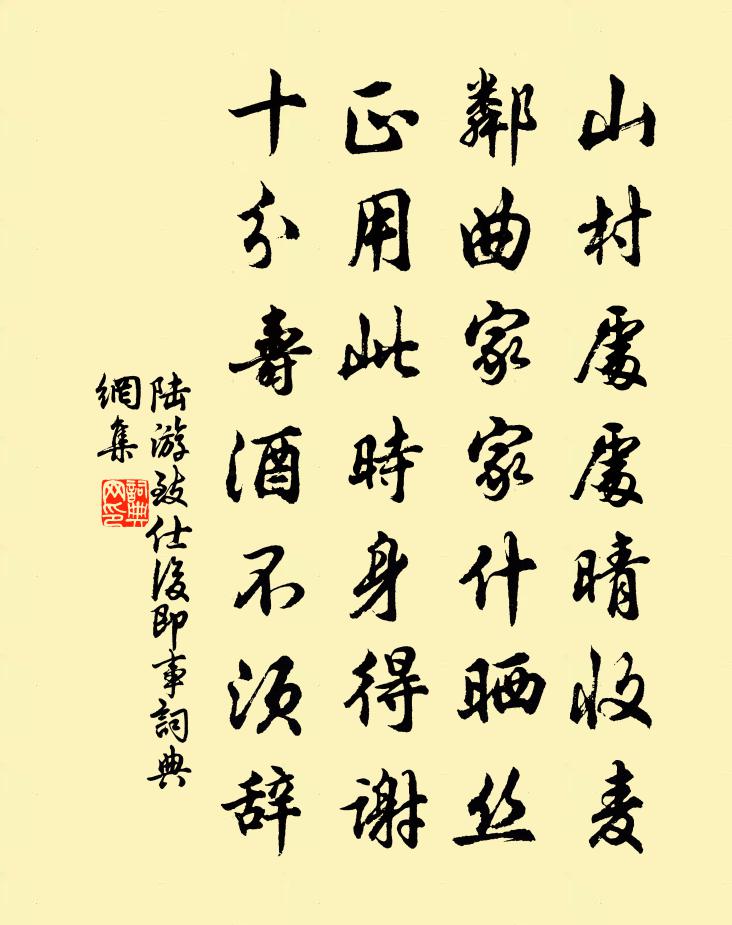 山村處處晴收麦
鄰曲家家什晒丝
正用此時身得谢
十分壽酒不须辞
陆游致仕後即事詞典
網集
詞典
网印